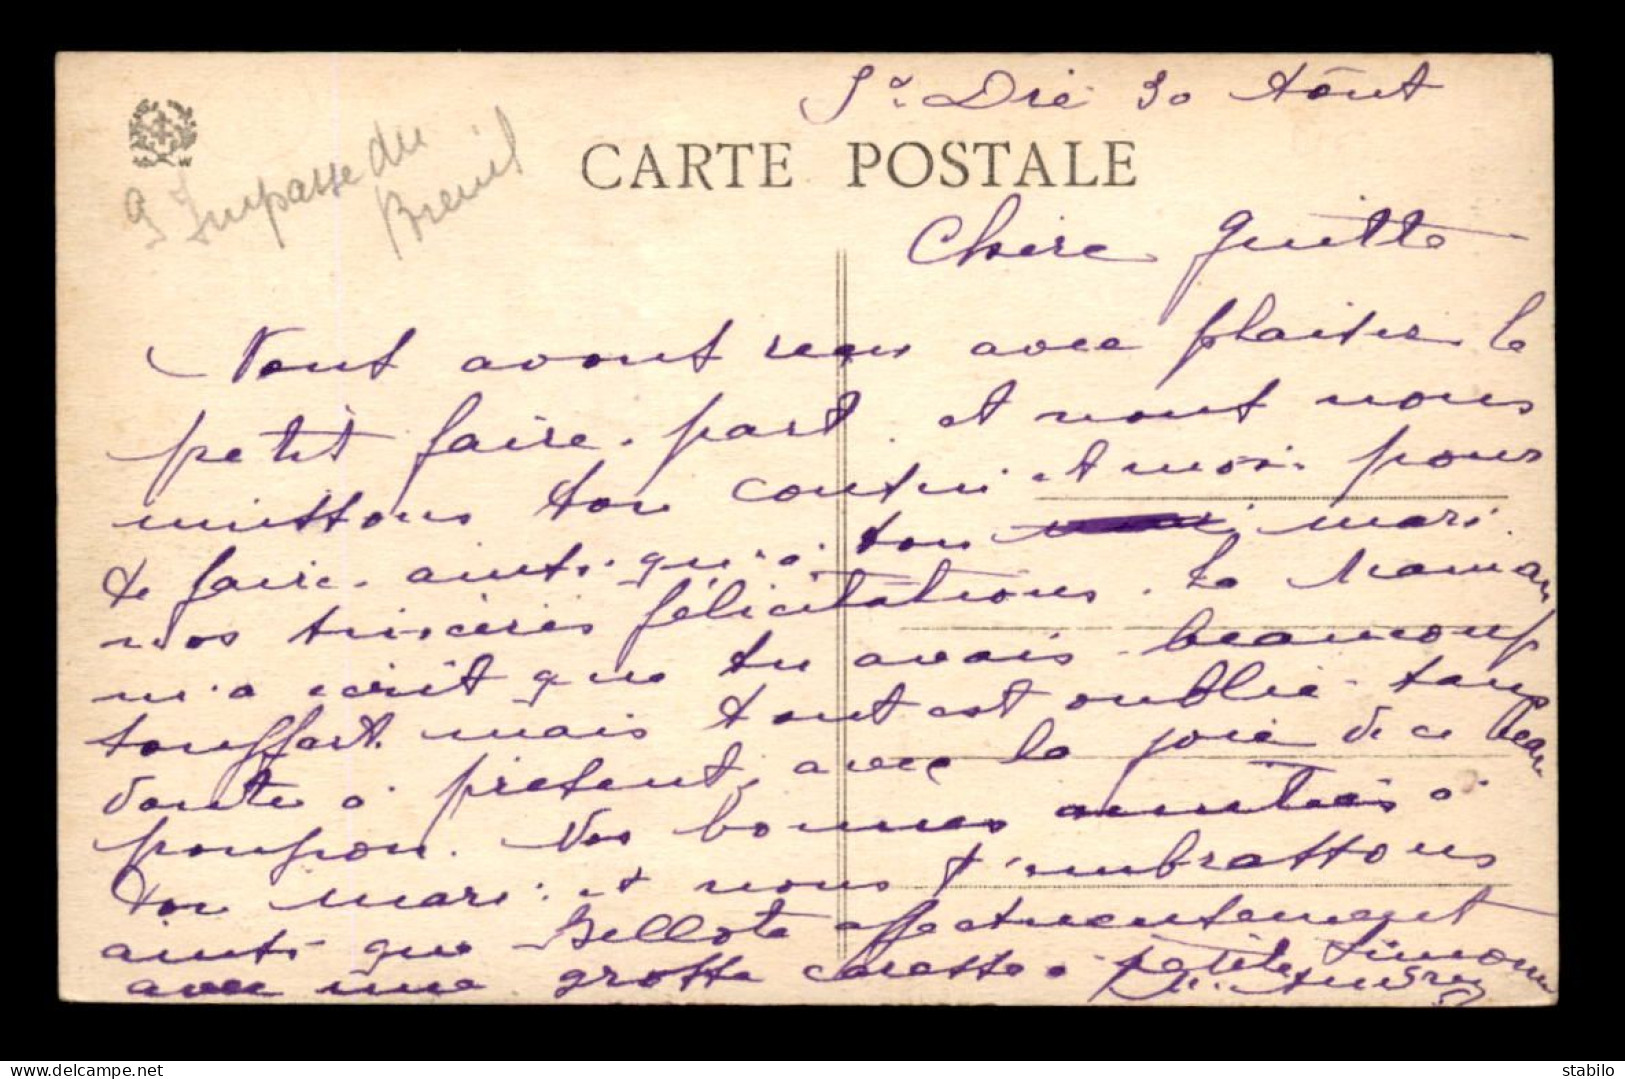 St Dié 30 Aôut
CARTE POSTALE
9 Impasse du
Breuil
Chère Guitte
Nous avons reçu avec plaisir le
petit faire-part. et nous nous
unissons ton cousin et moi pour
te faire. ainsi. qu'à ton mari.
nos sincères félicitations. Ta Maman
m'a écrit que tu avais beaucoup
souffert. mais tout est oublié sans
doute à présent, avec la joie de ce beau
poupon. Nos bonnes amitiés à
ton mari. et nous t'embrassons
ainsi que Bellote affectueusement
avec une grosse caresse à petite Simone